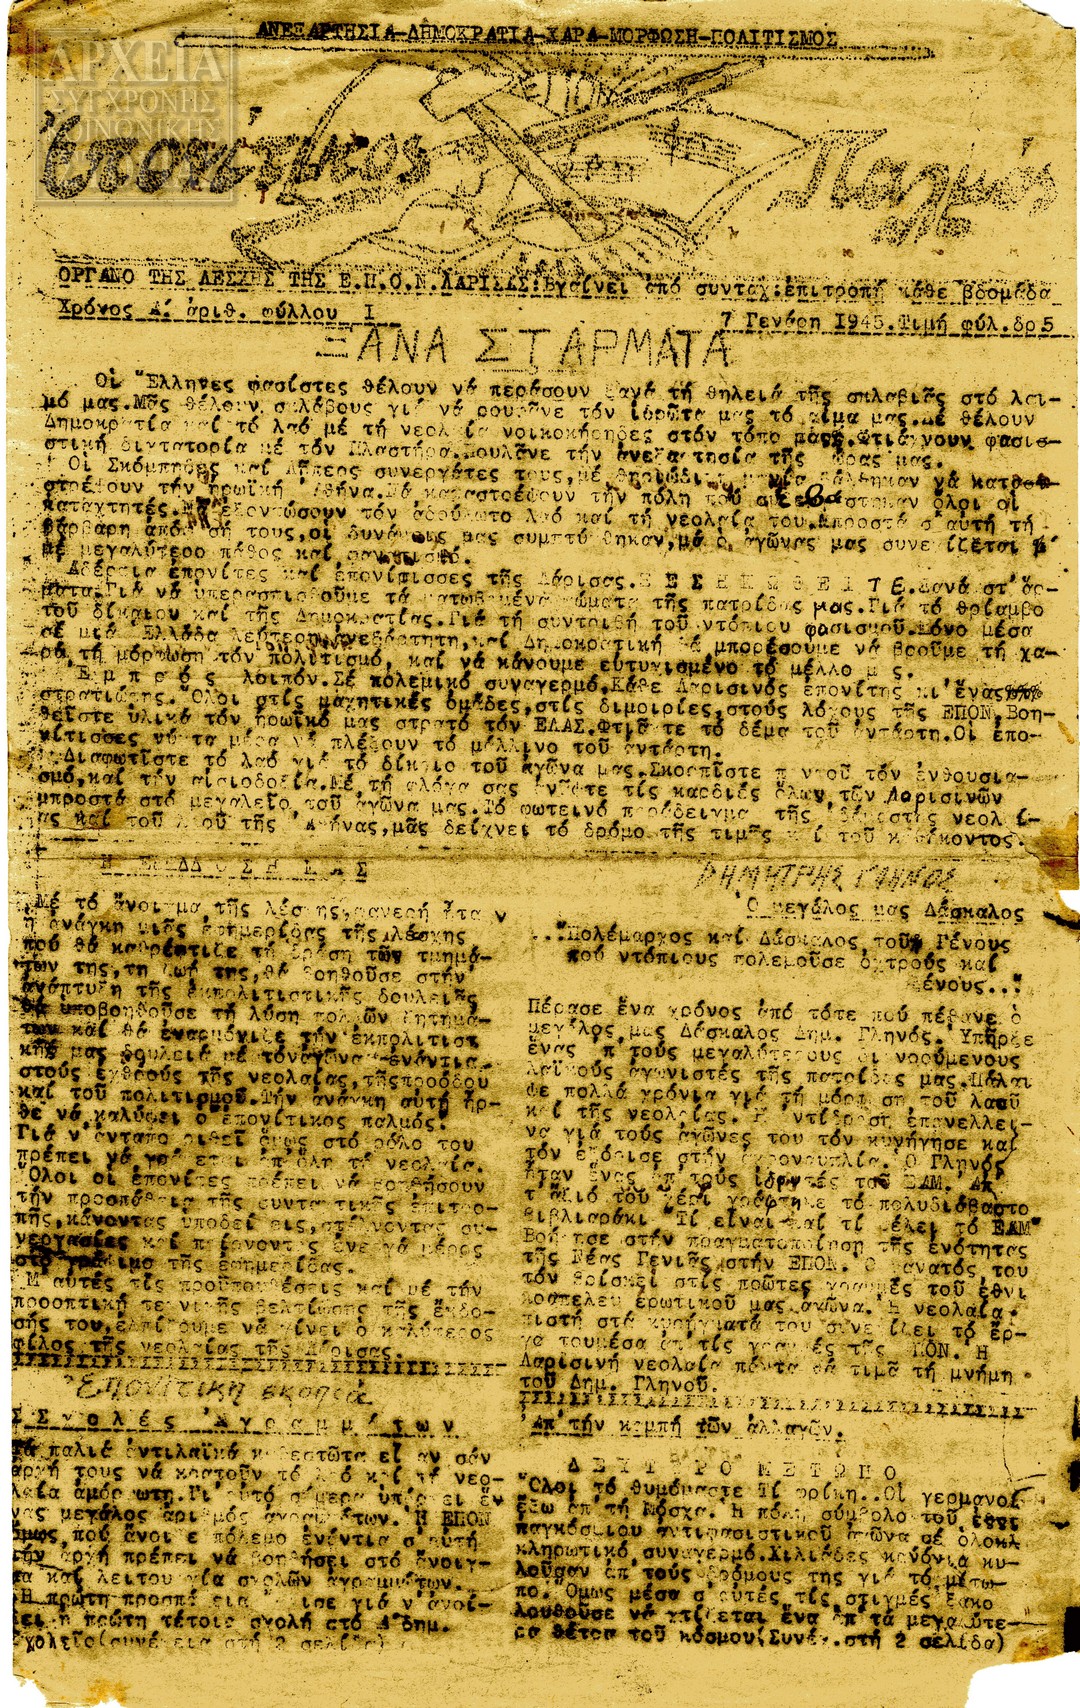 ΑΝΕΞΑΡΤΗΣΙΑ-ΔΗΜΟΚΡΑΤΙΑ-ΧΑΡΑ-ΜΟΡΦΩΣΗ-ΠΟΛΙΤΙΣΜΟΣ
ΑΡΧΕΙΑ
ΣΥΓΧΡΟΝΗΣ
ΚΟΙΝΩΝΙΚΗΣ
ΕΠΟΝ
Ἐπονίτικος Παλμός
ΟΡΓΑΝΟ ΤΗΣ ΛΕΣΧΗΣ ΤΗΣ Ε.Π.Ο.Ν.ΛΑΡΙΣΑΣ:Βγαίνει ἀπό συνταχ:ἐπιτροπή κάθε βδομάδα
Χρόνος Α. ἀριθ. φύλλου Ι
7 Γενάρη 1945.Τιμή φύλ.δρ5
ΞΑΝΑ ΣΤ ΑΡΜΑΤΑ
Οἱ Ἕλληνες φασίστες θέλουν νά περάσουν ξανά τή θηλειά τῆς σκλαβιᾶς στό λαι-
μό μας.Μᾶς θέλουν σκλάβους γιά νά ρουφᾶνε τόν ἱδρῶτα μας τό αἷμα μας.Δέ θέλουν
Δημοκρατία καί τό λαό μέ τή νεολαία νοικοκήρηδες στόν τόπο μας.Φτιάχνουν φασι-
στική διχτατορία μέ τόν Πλαστήρα.Πουλᾶνε τήν ἀνεξαρτησία τῆς χώρας μας.
Οἱ Σκόμπηδες καί Λήπερς συνεργάτες τους,μέ θηριώδικη μανία βάλθηκαν νά κατα-
στρέψουν τήν ἡρωϊκή Ἀθήνα.Νά καταστρέψουν τήν πόλη πού ὅλοι οἱ
καταχτητές.Νά ἐξοντώσουν τόν ἀδούλωτο λαό καί τή νεολαία του.Μπροστά σ'αὐτή τή
βάρβαρη τους,οἱ δυνάμεις μας συμπτύχθηκαν,μά ὁ ἀγῶνας μας συνεχίζεται μ'
μέ μεγαλύτερο πάθος καί φανατισμό.
Ἀδέρφια ἐπονίτες καί ἐπονίτισσες τῆς Λάρισας.ΞΕΣΗΚΩΘΕΙΤΕ.Ξανά στ'ἄρ-
ματα.Γιά νά ὑπερασπισθοῦμε τά ματωβαμένα χώματα τῆς πατρίδας μας.Γιά τό θρίαμβο
τοῦ δίκαιου καί τῆς Δημοκρατίας.Γιά τή συντριβή τοῦ ντόπιου φασισμοῦ.Μόνο μέσα
σέ μιά Ἑλλάδα λεύτερη ἀνεξάρτητη,καί Δημοκρατική θά μπορέσουμε νά βροῦμε τή χα-
ρά,τή μόρφωση τόν πολιτισμό, καί νά κάνουμε εὐτυχισμένο τό μέλλο μας.
Ἐμπρός λοιπόν.Σέ πολεμικό συναγερμό.Κάθε Λαρισινός ἐπονίτης κι'ἕνας
στρατιώτης.Ὅλοι στίς μαχητικές ὁμάδες,στίς διμοιρίες,στούς λόχους τῆς ΕΠΟΝ.Βοη-
θεῖστε ὑλικά τόν ἡρωϊκό μας στρατό τόν ΕΛΑΣ.Φτιάχτε τό δέμα τοῦ ἀντάρτη.Οἱ ἐπο-
νίτισσες νά πλέξουν τό μάλλινο τοῦ ἀντάρτη.
Διαφωτῖστε τό λαό γιά τό δίκηο τοῦ ἀγῶνα μας.Σκορπῖστε παντοῦ τόν ἐνθουσια-
σμό,καί τήν αἰσιοδοξία.Μέ τή φλόγα σας ἀνάψτε τίς καρδιές ὅλων τῶν Λαρισινῶν
μπροστά στό μεγαλεῖο τοῦ ἀγῶνα μας.Τό φωτεινό παράδειγμα τῆς νεολαί-
ας καί τοῦ λαοῦ τῆς Ἀθήνας,μᾶς δείχνει τό δρόμο τῆς τιμῆς καί τοῦ καθήκοντος.
Η ΕΚΔΟΣΗ ΜΑΣ
Μέ τό ἄνοιγμα τῆς λέσχης,φανερή ἦταν
ἡ ἀνάγκη μιᾶς ἐφημερίδας τῆς λέσχης
πού θά καθρέπτιζε τή δράση τῶν τμημά-
των της,τη ζωή της,θά βοηθοῦσε στήν
ἀνάπτυξη τῆς ἐκπολιτιστικῆς δουλειᾶς
θά ὑποβοηθοῦσε τή λύση πολλῶν ζητημά-
των καί θά ἐναρμόνιζε τήν ἐκπολιτιστι
κῆς μας δουλειά μέ τόν ἀγῶνα ἐνάντια
στούς ἐχθρούς τῆς νεολαίας,τῆς προόδου
καί τοῦ πολιτισμοῦ.Τήν ἀνάγκη αὐτή ἦρ-
θε νά καλύψει ὁ ἐπονίτικος παλμός.
Γιά ν'ἀνταποκριθεῖ ὅμως στό ρόλο του
πρέπει νά γράφεται ἀπ'ὅλη τή νεολαία.
Ὅλοι οἱ ἐπονίτες πρέπει νά βοηθήσουν
τήν προσπάθεια τῆς συντακτικῆς ἐπιτρο-
πῆς,κάνοντας ὑποδείξεις,στέλνοντας συ-
νεργασίες καί παίρνοντας ἐνεργά μέρος
στό γράψιμο τῆς ἐφημερίδας.
Μ'αὐτές τίς προϋποθέσεις καί μέ τήν
προοπτική τεχνικῆς βελτίωσης τῆς ἔκδο-
σής του,ἐλπίζουμε νά γίνει ὁ καλύτερος
φίλος τῆς νεολαίας τῆς Λάρισας.
Ἐπονίτικη σκοπιά
Σχολές Ἀγραμμάτων
Τά παλιά ἀντιλαϊκά καθεστῶτα εἶχαν σάν
ἀρχή τους νά κρατοῦν τό λαό καί τή νεο-
λαία ἀμόρφωτη.Γι'αὐτό σήμερα ὑπάρχει ἕν
νας μεγάλος ἀριθμός ἀγραμμάτων. Ἡ ΕΠΟΝ
ὅμως,πού ἄνοιξε πόλεμο ἐνάντια σ'αὐτή
τήν ἀρχή πρέπει νά βοηθήσει στό ἄνοιγ-
μα καί λειτουργία σχολῶν ἀγραμμάτων.
Ἡ πρώτη προσπάθεια γιά ν'ἀνοί-
ξει ἡ πρώτη τέτοια σχολή στό Δημ.
Σχολεῖο(συνέχεια στή 2 σελίδα)
ΔΗΜΗΤΡΗΣ ΓΛΗΝΟΣ
Ὁ μεγάλος μας Δάσκαλος
..."Πολέμαρχος καί Δάσκαλος τοῦ Γένους
πού ντόπιους πολεμοῦσε ὀχτρούς καί
ξένους..."
Πέρασε ἕνα χρόνος ἀπό τότε πού πέθανε ὁ
μεγάλος μας Δάσκαλος Δημ. Γληνός. Ὑπῆρξε
ἕνας ἀπ τούς μεγαλύτερους διανοούμενους
λαϊκούς ἀγωνιστές τῆς πατρίδας μας.Πάλαι
ψε πολλά χρόνια γιά τή μόρφωση τοῦ λαοῦ
καί τῆς νεολαίας. Ἡ ἀντίδραση ἐπανελλει-
να γιά τούς ἀγῶνες του τόν κυνήγησε καί
τόν ἐξόρισε στήν ἀκροναυπλία. Ὁ Γληνός
ἦταν ἕνας ἀπ τούς ἱδρυτές τοῦ ΕΑΜ. Ἀπ'
τ'ἄξιό του χέρι γράφτηκε τό πολυδιάβαστο
βιβλιαράκι "Τί εἶναι καί τί θέλει τό ΕΑΜ"
Βοήθησε στήν πραγματοποίηση τῆς ἑνότητας
τῆς Νέας Γενιᾶς στήν ΕΠΟΝ. Ὁ θάνατός του
τόν βρίσκει στίς πρῶτες γραμμές τοῦ ἐθνι
κοαπελευθερωτικοῦ μας ἀγῶνα. Ἡ νεολαία
πιστή στά κηρύγματά του συνεχίζει τό ἔρ-
γο του μέσα ἀπ τίς γραμμές τῆς ΕΠΟΝ. Ἡ
Λαρισινή νεολαία πάντα θά τιμᾶ τή μνήμη
τοῦ Δημ. Γληνοῦ.
Ἀπ'τήν καμπή τῶν ἀλλαγῶν.
ΔΕΥΤΕΡΟ ΜΕΤΩΠΟ
Ὅλοι τό θυμόμαστε Τί φρίκη..Οἱ γερμανοί
ἔξω ἀπ'τή Μόσχα. Ἡ πόλη σύμβολο τοῦ
παγκόσμιου ἀντιφασιστικοῦ ἀγῶνα σέ ὁλοκλ
κληρωτικό συναγερμό.Χιλιάδες κανόνια κυ-
λοῦσαν ἀπ τούς δρόμους της γιά τό μέτω-
πο. Ὅμως μέσα σ'αὐτές τίς στιγμές ἐξακο
λουθοῦσε νά χτίζεται ἕνα ἀπ τά μεγαλύτε-
ρα θέτρα τοῦ κόσμου(Συνέχ.στή 2 σελίδα)